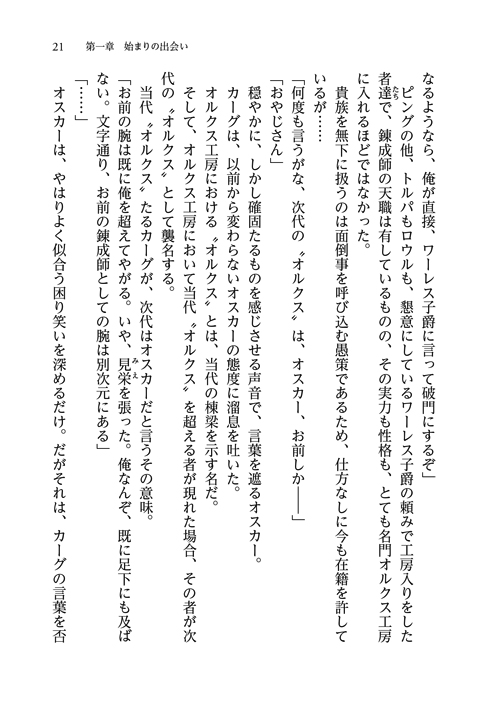 21　第一章　始まりの出会い
なるようなら、俺が直接、ワーレス子爵に言って破門にするぞ」
ピングの他、トルパもロウルも、懇意にしているワーレス子爵の頼みで工房入りをした
者達で、錬成師の天職は有しているものの、その実力も性格も、とても名門オルクス工房
たち
に入れるほどではなかった。
貴族を無下に扱うのは面倒事を呼び込む愚策であるため、仕方なしに今も在籍を許して
いるが……
「何度も言うがな、次代の〝オルクス〟は、オスカー、お前しか――」
「おやじさん」
穏やかに、しかし確固たるものを感じさせる声音で、言葉を遮るオスカー。
カーグは、以前から変わらないオスカーの態度に溜息を吐いた。
オルクス工房における〝オルクス〟とは、当代の棟梁を示す名だ。
そして、オルクス工房において当代〝オルクス〟を超える者が現れた場合、その者が次
代の〝オルクス〟として襲名する。
当代〝オルクス〟たるカーグが、次代はオスカーだと言うその意味。
「お前の腕は既に俺を超えてやがる。いや、見栄を張った。俺なんぞ、既に足下にも及ば
みえ
ない。文字通り、お前の錬成師としての腕は別次元にある」
「……」
オスカーは、やはりよく似合う困り笑いを深めるだけ。だがそれは、カーグの言葉を否